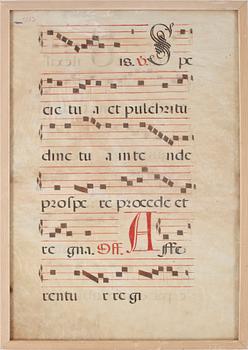 is. ℣ Spe
cie tu a et pulchritu
dine tu a inte nde
prospe re procede et
re gna. Off. Affe
rentu r re gi